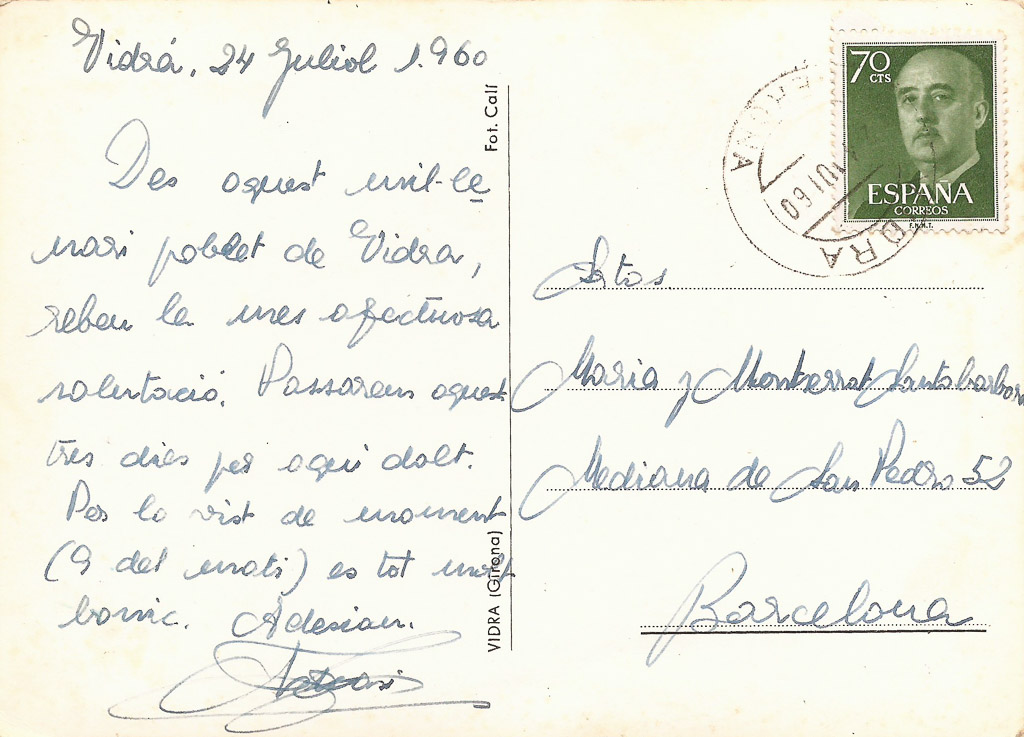 Vidrá, 24 Juliol 1.960
Des aquest mil·le
nari poblet de Vidra,
rebeu la mes afectuosa
salutació. Passarem aquest
tres dies per aqui dalt.
Per lo vist de moment
(9 del mati) es tot molt
bonic. Adesiau.
Fot. Calí
VIDRA (Girona)
70 CTS
ESPAÑA
CORREOS
F.N.M.T.
Srtas
Maria y Montserrat Santabarbara
Mediana de San Pedro 52
Barcelona